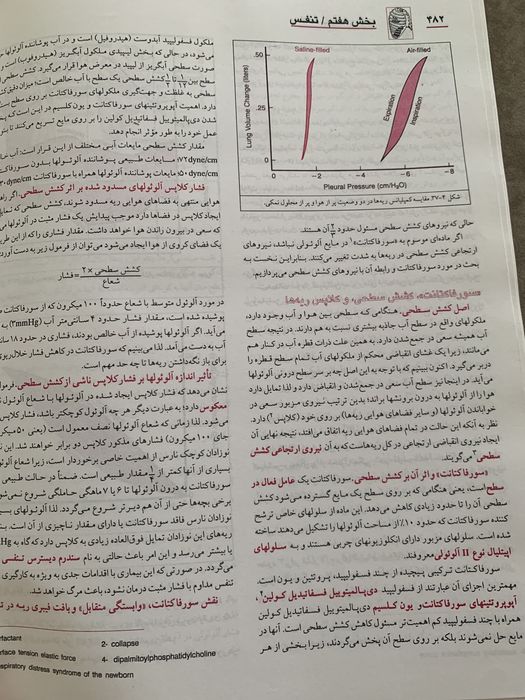 ۴۸۲
بخش هفتم / تنفس
Saline-filled
Air-filled
.50
.25
0
Lung Volume Change (liters)
Expiration
Inspiration
0
−2
−4
−6
−8
Pleural Pressure (cm/H₂O)
شکل ۴−۳۷. مقایسه کمپلیانس ریه‌ها در دو وضعیت پر از هوا و پر از محلول نمکی.
حالی که نیروهای کشش سطحی مسئول حدود ۲/۳ آن هستند.
اگر ماده‌ای موسوم به «سورفاکتانت» در مایع آلوئولی نباشد، نیروهای
ارتجاعی کشش سطحی در ریه‌ها به شدت تغییر می‌کنند. بنابراین نخست به
بحث در مورد سورفاکتانت و رابطه آن با نیروهای کشش سطحی می‌پردازیم.
«سورفاکتانت»، کشش سطحی، و کلاپس ریه‌ها
اصل کشش سطحی. هنگامی که سطحی بین هوا و آب وجود دارد،
ملکولهای واقع در سطح آب جاذبه بیشتری نسبت به هم دارند. در نتیجه سطح
آب همیشه سعی در جمع شدن دارد. به همین علت ذرات قطره آب در کنار هم
می‌مانند، زیرا یک غشای انقباضی محکم از ملکولهای آب تمام سطح قطره را
دربر می‌گیرد. اکنون ببینیم که با توجه به این اصل چه بر سر سطح درونی آلوئولها
می‌آید. در اینجا نیز سطح آب سعی در جمع شدن و انقباض دارد و لذا تمایل دارد
هوا را از آلوئولها به درون برونشها براند؛ بدین ترتیب نیروی مزبور سعی در
خواباندن آلوئولها (و سایر فضاهای هوایی ریه) بر روی خود (کلاپس۲) دارد.
نظر به آنکه این حالت در تمام فضاهای هوایی ریه اتفاق می‌افتد، نتیجه نهایی آن
ایجاد نیروی انقباضی ارتجاعی در کل ریه‌هاست که به آن نیروی ارتجاعی کشش
سطحی۳ می‌گویند.
«سورفاکتانت» و اثر آن بر کشش سطحی. سورفاکتانت یک عامل فعال در
سطح است، یعنی هنگامی که بر روی سطح یک مایع گسترده می‌شود کشش
سطحی آن را تا حدود زیادی کاهش می‌دهد. این ماده از سلولهای خاص ترشح
کننده سورفاکتانت که حدود ۱۰٪ از مساحت آلوئولها را تشکیل می‌دهند ساخته
شده است. سلولهای مزبور دارای انکلوزیونهای چربی هستند و به سلولهای
اپیتلیال نوع II آلوئولی معروفند.
سورفاکتانت ترکیبی پیچیده از چند فسفولیپید، پروتئین و یون است.
مهمترین اجزای آن عبارتند از فسفولیپید دی‌پالمیتوییل فسفاتیدیل کولین۴،
آپوپروتئینهای سورفاکتانت، و یون کلسیم. دی‌پالمیتوییل فسفاتیدیل کولین
همراه با چند فسفولیپید کم اهمیت‌تر مسئول کاهش کشش سطحی است. آنها در
مایع حل نمی‌شوند بلکه بر روی سطح آن پخش می‌گردند، زیرا بخشی از هر
ملکول فسفولیپید آبدوست (هیدروفیل) است و در آب پوشاننده آلوئولها
می‌شود، در حالی که بخش لیپیدی ملکول آبگریز (هیدروفوب) است و
صورت سطحی آبگریز از لیپید در معرض هوا قرار می‌گیرد. کشش سطحی
سطحی به غلظت و جهت‌گیری ملکولهای سورفاکتانت بر روی سطح
دارد. اهمیت آپوپروتئینهای سورفاکتانت و یون کلسیم در این است که
شدن دی‌پالمیتوییل فسفاتیدیل کولین را بر روی مایع تسریع می‌کنند تا
عمل خود را به طور مؤثر انجام دهد.
مقدار کشش سطحی مایعات آبی مختلف از این قرار است: آب
۷۲dyne/cm؛ مایعات طبیعی پوشاننده آلوئولها بدون
۵۰dyne/cm؛ مایعات پوشاننده آلوئولها همراه با سورفاکتانت
فشار کلاپس آلوئولهای مسدود شده بر اثر کشش سطحی.
هوایی منتهی به فضاهای هوایی ریه مسدود شوند، کشش سطحی که تمایل
ایجاد کلاپس در فضاها دارد موجب پیدایش یک فشار مثبت در آلوئولها
که سعی در بیرون راندن هوا خواهد داشت. مقدار فشاری را که از این
یک فضای کروی از هوا ایجاد می‌شود می‌توان از فرمول زیر به دست آورد:
فشار = ۲ × کشش سطحی / شعاع
در مورد آلوئول متوسط با شعاع حدوداً ۱۰۰ میکرون که از سورفاکتانت
پوشیده شده است، مقدار فشار حدود ۴ سانتی‌متر آب (۳mmHg) به
می‌آید. اگر آلوئولها پوشیده از آب خالص بودند، فشاری در حدود ۱۸
آب به دست می‌آمد. لذا می‌بینیم که سورفاکتانت در کاهش فشار
برای باز نگه‌داشتن ریه‌ها تا چه حد مهم است.
تأثیر اندازه آلوئولها بر فشار کلاپس ناشی از کشش سطحی.
نشان می‌دهد که فشار کلاپس ایجاد شده در آلوئولها با شعاع آلوئول
معکوس دارد؛ به عبارت دیگر هر چه آلوئول کوچکتر باشد، فشار کلاپس
می‌شود. لذا زمانی که شعاع آلوئولها نصف معمول است (یعنی ۵۰
جای ۱۰۰ میکرون) فشارهای مذکور کلاپس دو برابر خواهند شد. این
نوزادان کوچک نارس از اهمیت خاصی برخوردار است، زیرا شعاع
بسیاری از آنها کمتر از ۱/۴ مقدار طبیعی است. ضمناً در حالت طبیعی
سورفاکتانت به درون آلوئولها تا ۶ یا ۷ ماهگی حاملگی شروع
برخی بچه‌ها حتی از آن هم دیرتر شروع می‌گردد. لذا آلوئولهای
نوزادان نارس فاقد سورفاکتانت یا دارای مقدار ناچیزی از آن است.
ریه‌های این نوزادان تمایل فوق‌العاده زیادی به کلاپس دارد که گاه به
یا بیشتر می‌رسد و این امر باعث حالتی به نام سندرم دیسترس تنفسی
می‌گردد. در صورتی که این بیماری با اقدامات جدی به ویژه به کارگیری
تنفس مداوم با فشار مثبت درمان نشود، باعث مرگ خواهد شد.
نقش سورفاکتانت، «وابستگی متقابل» و بافت فیبری ریه در
2- collapse
4- dipalmitoylphosphatidylcholine
tension elastic force
distress syndrome of the newborn